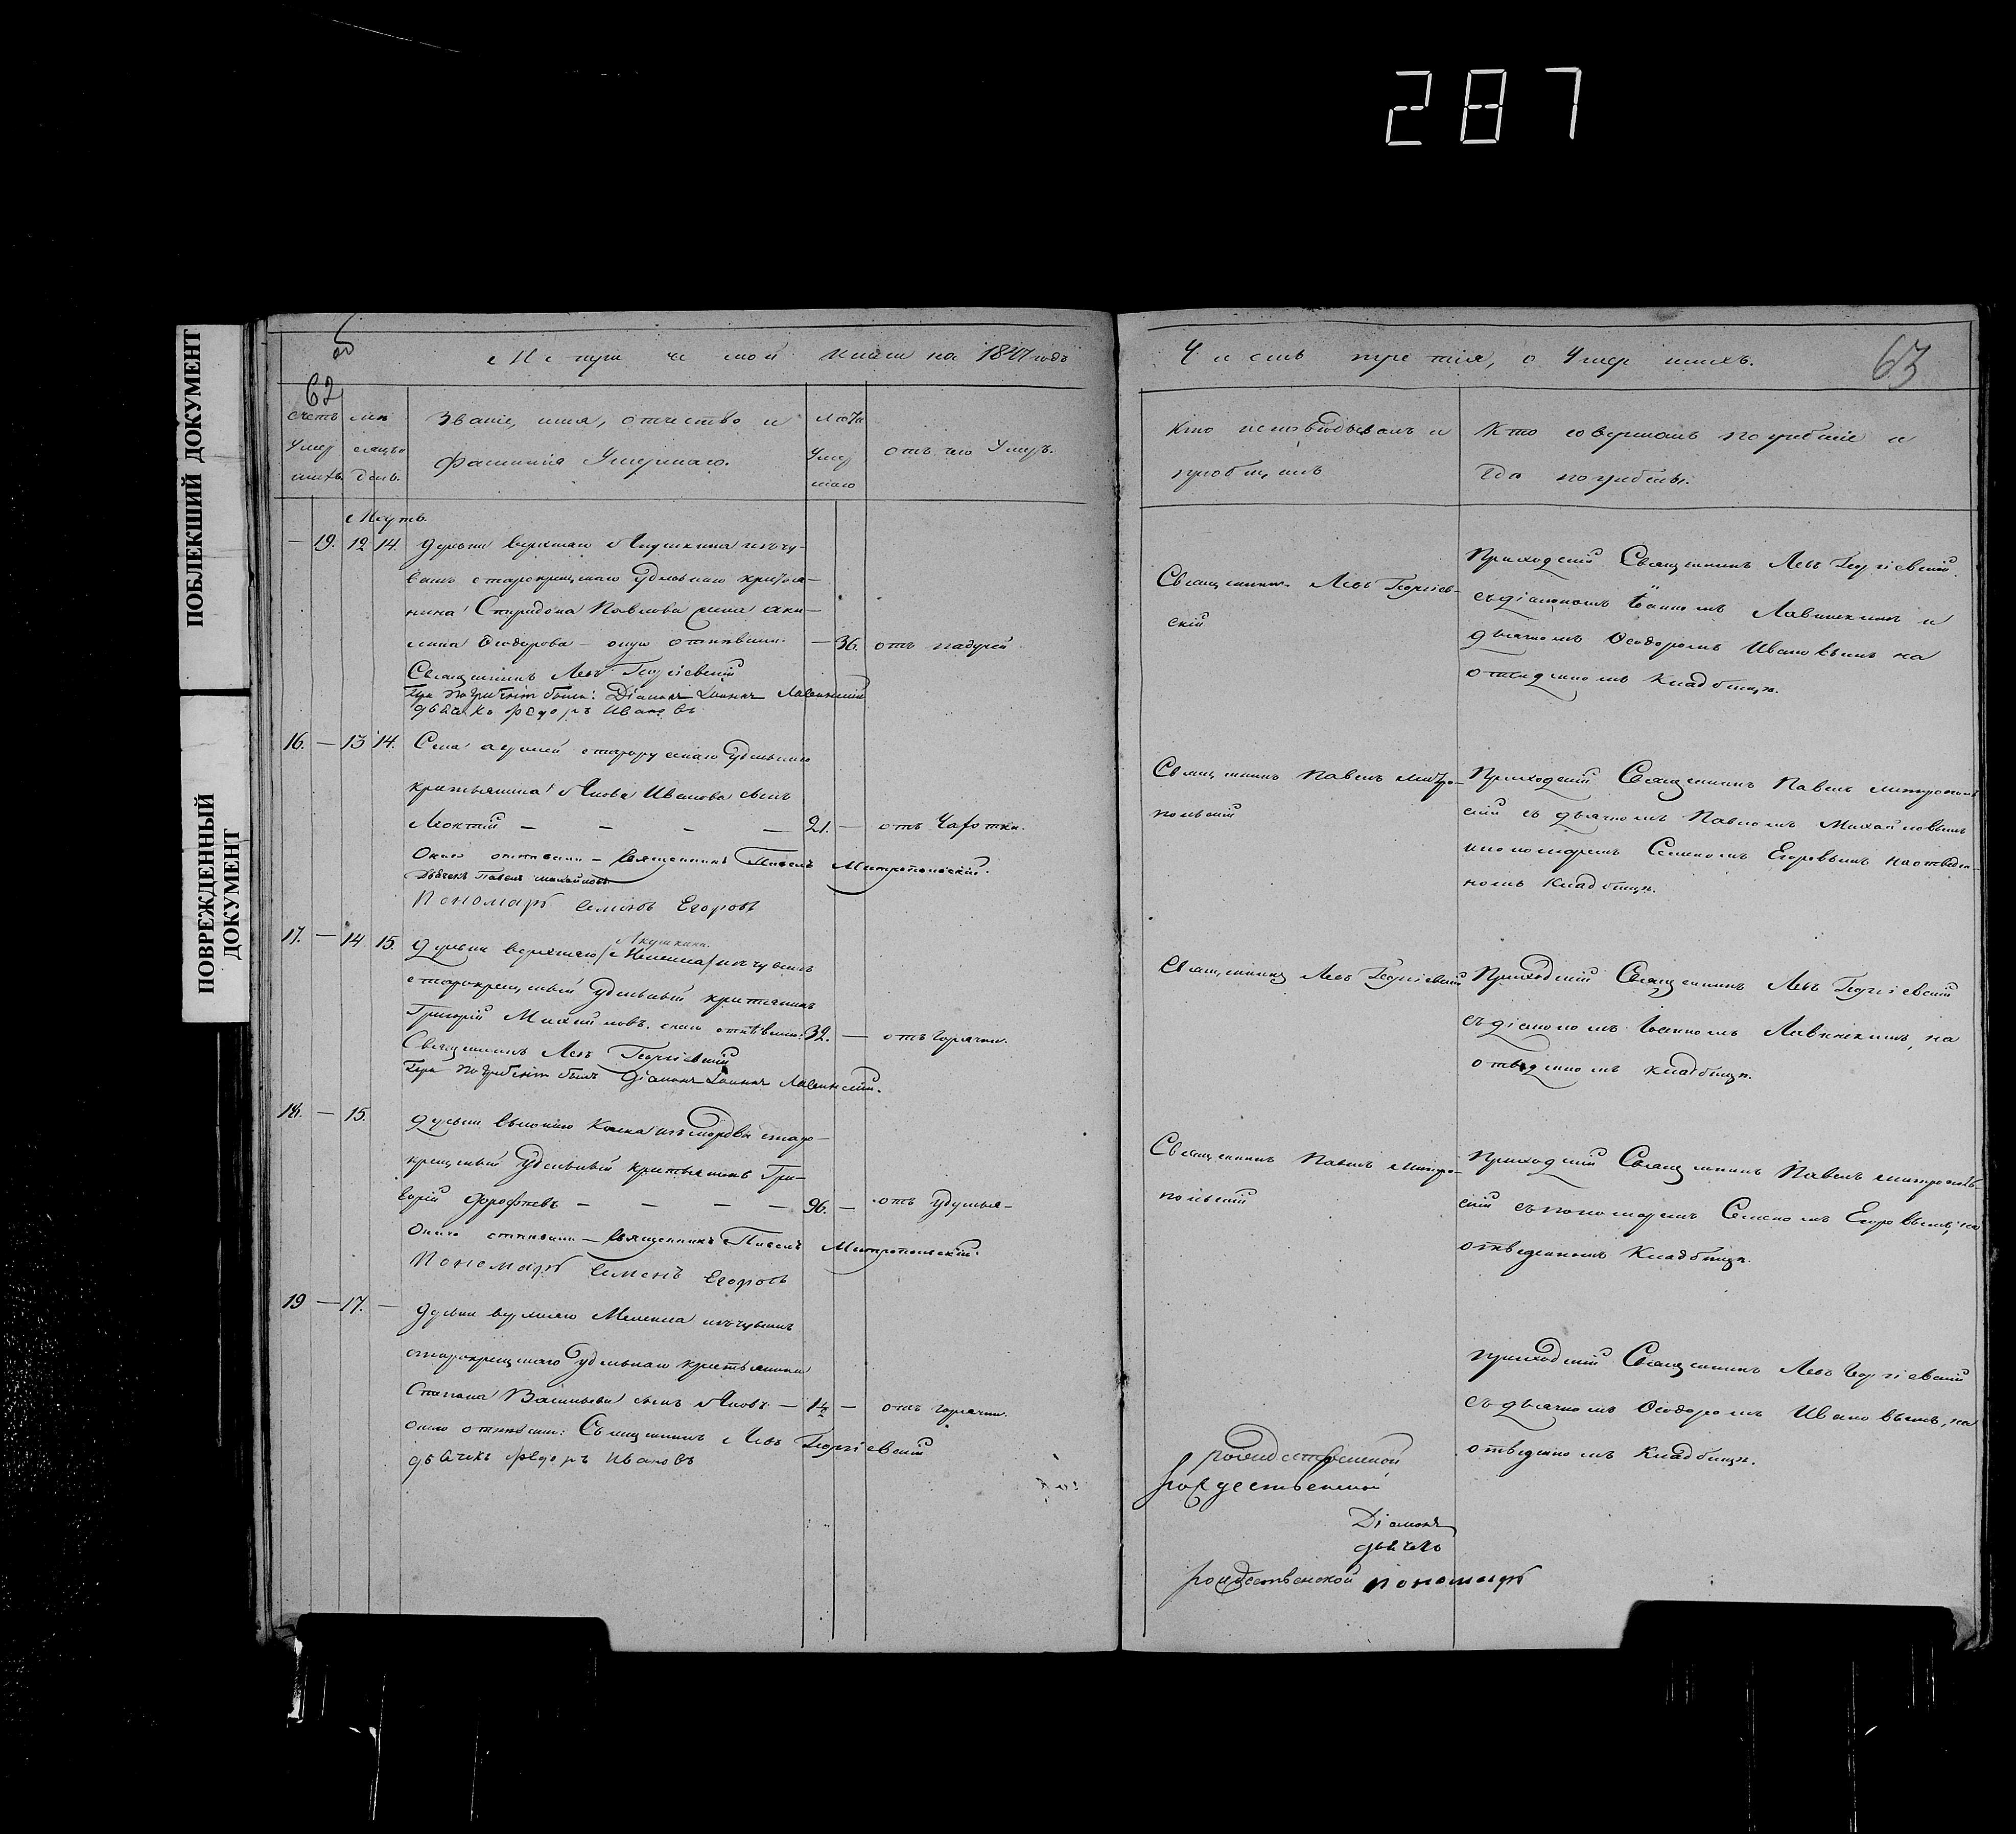 287
ПОБЛЕКШИЙ ДОКУМЕНТ
ПОВРЕЖДЕННЫЙ
ДОКУМЕНТ
62
книги на 18 годъ
счетъ
Умер
шихъ
день.
Званіе, имя, отчество и
фамилія Умершаго.
лѣта
Умер
шаго
отъ чего Умеръ.
Мартъ.
— 19. 12 14.
старокрещенаго Удѣльнаго
Спиридона Павлова жена
Ѳеодорова — оную отпѣвали: — 36. отъ
Священникъ Левъ Георгіевскій
При погребеніи были: Діаконъ Іоаннъ
дьячекъ Федоръ Ивановъ
16. — 13 14. Села Удѣльнаго
крестьянина Якова Иванова сынъ
Леонтій — — — — 21. — отъ Чахотки.
Онаго отпѣвали — Священникъ Павелъ Митропольскій.
Дьячекъ Павелъ Михайловъ
Пономарь Семенъ Егоровъ
17. — 14 15. деревни
старокрещеный Удѣльный крестьянинъ
Григорій Михайловъ. онаго отпѣвали: 32. — отъ горячки.
Священникъ Левъ Георгіевскій
При погребеніи былъ Діаконъ Іоаннъ
18. — 15. деревни изъ мордвы старо-
крещеный Удѣльный крестьянинъ Гри-
горій — — — — 96. — отъ удушья —
Онаго отпѣвали — Священникъ Павелъ Митропольскій.
Пономарь Семенъ Егоровъ
19 — 17. — деревни изъ чувашъ
старокрещенаго Удѣльнаго крестьянина
Степана Васильева сынъ Яковъ — — отъ горячки.
онаго отпѣвали: Священникъ Левъ Георгіевскій
дьячекъ Федоръ Ивановъ
Часть третія, о Умершихъ.
63
Кто исповѣдывалъ и
пріобщалъ
Кто совершалъ погребеніе и
гдѣ погребены.
Священникъ Левъ Георгіев-
скій
Приходскій Священникъ Левъ Георгіевскій
съ діакономъ Іоанномъ и
дьячкомъ Ѳеодоромъ Ивановымъ на
отведенномъ кладбищѣ.
Священникъ Павелъ Митро-
польскій
Приходскій Священникъ Павелъ Митрополь
скій съ дьячкомъ Павломъ Михайловымъ
и пономаремъ Семеномъ Егоровымъ на отведен-
номъ кладбищѣ.
Священникъ Левъ Георгіевскій
Приходскій Священникъ Левъ Георгіевскій
съ діакономъ Іоанномъ на
отведенномъ кладбищѣ.
Священникъ Павелъ Митро-
польскій
Приходскій Священникъ Павелъ Митрополь-
скій съ пономаремъ Семеномъ Егоровымъ, на
отведенномъ Кладбищѣ.
Приходскій Священникъ Левъ Георгіевскій
съ дьячкомъ Ѳеодоромъ Ивановымъ, на
отведенномъ Кладбищѣ.
Рождественской
Діаконъ
дьячекъ
Рождественской пономарь